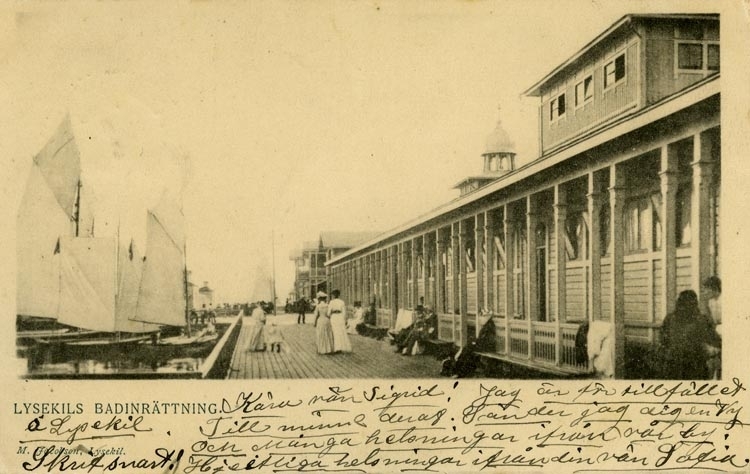 LYSEKILS BADINRÄTTNING. Kära vän Sigrid! Jag är för tillfället
å Lysekil Till minne deraf. Sänder jag dig en Vy
M. Jacobson, Lysekil. Och Många helsningar ifrån vår by!
Skrif snart! Hjertliga helsningar ifrån din vän